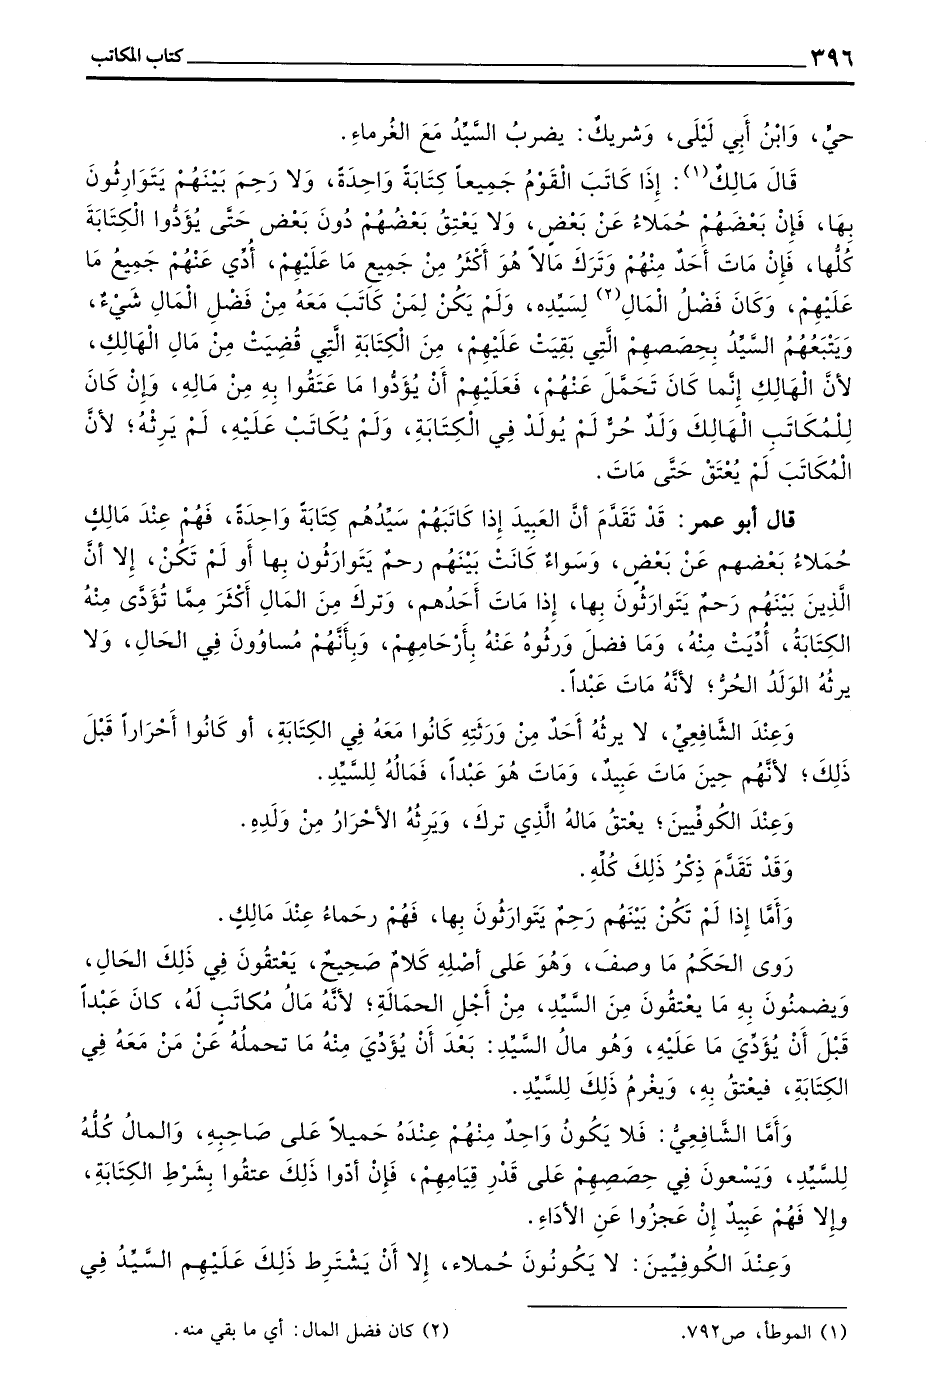 ٣٩٦ كتاب المكاتب
حيٍّ، وَابْنُ أَبِي لَيْلَى، وَشريكٌ: يضربُ السَّيِّدُ مَعَ الغُرماءِ.
قَالَ مَالِكٌ(١): إِذَا كَاتَبَ الْقَوْمُ جَمِيعاً كِتَابَةً وَاحِدَةً، وَلا رَحِمَ بَيْنَهُمْ يَتَوَارِثُونَ
بِهَا، فَإِنْ بَعْضَهُمْ حُمَلاءُ عَنْ بَعْضٍ، وَلا يَعْتِقُ بَعْضُهُمْ دُونَ بَعْض حَتَّى يُؤَدُّوا الْكِتَابَةَ
كُلُّها، فَإِن مَاتَ أَحَدٌ مِنْهُمْ وَتَرَكَ مَالاً هُوَ أَكْثَرُ مِنْ جَمِيعِ مَا عَلَيْهِمْ، أُدِّي عَنْهُمْ جَمِيعُ مَا
عَلَيْهِمْ، وَكَانَ فَضْلُ الْمَالِ(٢) لِسَيِّدِه، وَلَمْ يَكُنْ لِمَنْ كَاتَبَ مَعَهُ مِنْ فَضْلِ الْمَالِ شَيْءٌ،
وَيَتْبَعُهُمُ السَّيِّدُ بِحِصَصِهِمْ الَّتِي بَقِيَتْ عَلَيْهِمْ، مِنَ الْكِتَابَةِ الَّتِي قُضِيَتْ مِنْ مَالِ الْهَالِكِ،
لأنَّ الْهَالِكِ إِنَّما كَانَ تَحَمَّلَ عَنْهُمْ، فَعَلَيْهِمْ أَنْ يُؤَدُّوا مَا عَتَقُوا بِهِ مِنْ مَالِهِ، وَإِن كَانَ
لِلْمُكَاتَبِ الْهَالِكَ وَلَدٌ حُرٌّ لَمْ يُولَدْ فِي الْكِتَابَةِ، وَلَمْ يُكَاتَبْ عَلَيْهِ، لَمْ يَرِثْهُ؛ لأنَّ
الْمُكَاتَبَ لَمْ يُعْتَقْ حَتَّى مَاتَ.
قال أبو عمر: قَدْ تَقَدَّمَ أنَّ العَبِيدَ إِذَا كاتَبَهُمْ سَيِّدُهُم كِتَابَةً وَاحِدَةً، فَهُمْ عِنْدَ مَالِكٍ
حُمَلاءُ بَعْضهم عَنْ بَعْضٍ، وَسَواءٌ كَانَتْ بَيْنَهُم رحمٌ يَتَوارَثُون بِها أَو لَمْ تَكُنْ، إِلا أنَّ
الَّذِينَ بَيْنَهُم رَحمٌ يَتَوارَثُونَ بِها، إذَا مَاتَ أَحَدُهم، وَتركَ مِنَ المَالِ أَكْثَرَ مِمَّا تُؤَدَّى مِنْهُ
الكِتَابَةُ، أُدِّيَتْ مِنْهُ، وَمَا فضلَ وَرثُوهُ عَنْهُ بِأَرْحَامِهِمْ، وَبِأَنَّهُمْ مُساوُونَ فِي الحَالِ، وَلا
يرثُهُ الوَلَدُ الحُرُّ؛ لأنَّهُ مَاتَ عَبْداً.
وَعِنْدَ الشَّافِعِيِّ، لا يرثُهُ أَحَدٌ مِنْ وَرَثَتِهِ كَانُوا مَعَهُ فِي الكِتَابَةِ، أو كَانُوا أَحْرَاراً قَبْلَ
ذَلِكَ؛ لأنَّهُم حِينَ مَاتَ عَبِيدٌ، وَماتَ هُوَ عَبْداً، فَمَالُهُ لِلسَّيِّدِ.
وَعِنْدَ الكُوفِّيينَ؛ يعْتقُ مَالهُ الَّذِي تركَ، وَيَرِثُهُ الأحْرَارُ مِنْ وَلَدِهِ.
وَقَدْ تَقَدَّمَ ذِكْرُ ذَلِكَ كُلِّهِ.
وَأَمَّا إذا لَمْ تَكُنْ بَيْنَهُم رَحِمٌ يَتَوارَثُونَ بِها، فَهُمْ رحَماءُ عِنْدَ مَالِكٍ.
رَوى الحَكَمُ مَا وصفَ، وَهُوَ عَلى أصْلِهِ كَلامٌ صَحِيحٌ، يَعْتقُونَ فِي ذَلِكَ الحَالِ،
وَيضمنُونَ بِهِ مَا يعْتقُونَ مِنَ السَّيِّدِ، مِنْ أَجْلِ الحمَالَةِ؛ لأنَّهُ مَالُ مُكاتَبٍ لَهُ، كانَ عَبْداً
قَبْلَ أَنْ يُؤَدِّيَ مَا عَلَيْهِ، وَهُو مالُ السَّيِّدِ: بَعْدَ أَنْ يُؤَدِّيَ مِنْهُ مَا تحملهُ عَنْ مَنْ مَعَهُ فِي
الكِتَابَةِ، فيعْتقُ بِهِ، وَيغْرمُ ذَلِكَ لِلسَّيِّدِ.
وَأَمَّا الشَّافعيُّ: فَلا يَكُونُ وَاحِدٌ مِنْهُمْ عِنْدَهُ حَميلاً عَلى صَاحِبِهِ، وَالمالُ كُلُّهُ
لِلسَّيِّدِ، وَيَسْعونَ فِي حِصَصِهِمْ عَلى قَدْرِ قِيَامِهِمْ، فَإِنْ أدّوا ذَلِكَ عتقُوا بِشَرْطِ الكِتَابَةِ،
وإِلا فَهُمْ عَبِيدٌ إنْ عَجزُوا عَنِ الأدَاءِ.
وَعِنْدَ الكُوفِيِّينَ: لا يَكُونُونَ حُملاء، إِلا أَنْ يَشْتَرِط ذَلِكَ عَلَيْهِم السَّيِّدُ فِي
(١) الموطأ، ص٧٩٢. (٢) كان فضل المال: أي ما بقي منه.